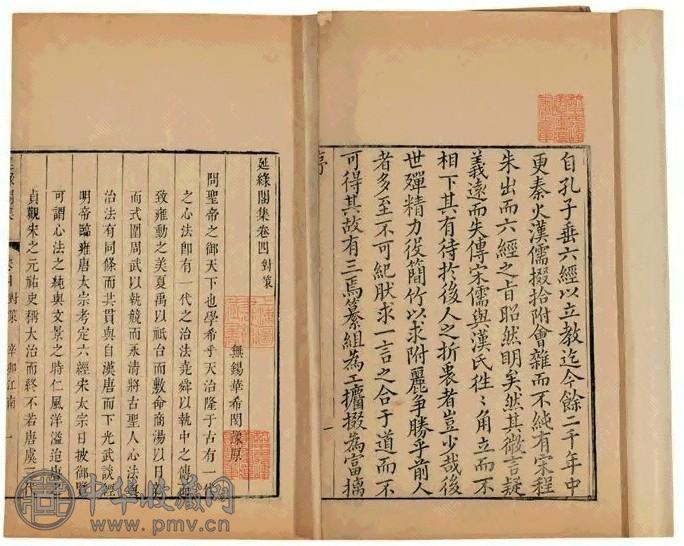 自孔子垂六經以立教迄今餘二千年中
更秦火漢儒掇拾附會雜而不純有宋程
朱出而六經之旨昭然明矣然其微言疑
義遠而失傳宋儒與漢氏徃〻角立而不
相下其有待扵後人之折衷者豈少哉後
世殫精力役簡竹以求附麗争勝乎前人
者多至不可紀肰求一言之合于道而不
可得其故有三焉纂組為工攟掇為富摛
序
一
延綠閣集卷四 對策
無錫華希閔豫原
問聖帝之御天下也學希乎天治隆于古有一代
之心法即有一代之治法堯舜以執中之傳
致雍動之美夏禹以祗台而敷命商湯以日
而式圍周武以執競而永清將古聖人心法
治法有同條而共貫與自漢唐而下光武談經
明帝臨雍唐太宗考定六經宋太宗日披御覽
可謂心法之純與文景之時仁風洋溢迨唐
貞觀宋之元祐史稱大治而終不若唐虞三
延綠閣集
卷四 對策
辛卯江南
一
中华收藏网
www.pmv.cn